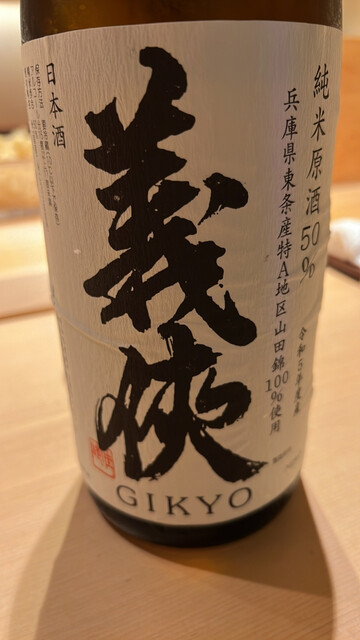 純米原酒50%
兵庫県東条産特A地区山田錦100%使用
令和5年度産
義侠
GIKYO
日本酒